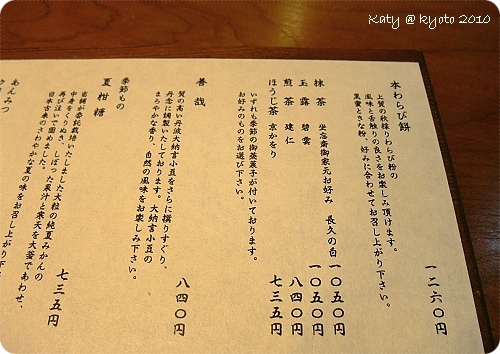 Katy @ kyoto 2010
本わらび餅
上質の秋採りわらび粉の
風味と舌触りの良さをお楽しみ頂けます。
黒蜜ときな粉、好みに合わせてお召し上がり下さい。
一二六〇円
抹茶 坐忘斎御家元お好み 長久の白 一〇五〇円
玉露 碧雲 一〇五〇円
煎茶 建仁 八四〇円
ほうじ茶 京かをり 七三五円
いずれも季節の御蒸菓子が付いております。
お好みのものをお選び下さい。
善哉
質の高い丹波大納言小豆をさらに撰りすぐり、
丹念に調製いたしております。大納言小豆の
まろやかな香り、自然の風味をお楽しみ下さい。
八四〇円
季節もの
夏柑糖
当舗が委託栽培いたしました大粒の純夏みかんの
中身をくりぬき、しぼった果汁と寒天を大釜であわせ、
再び注いで固めました。
日本古来のさわやかな夏の味をお召し上がり下
七三五円
あんみつ